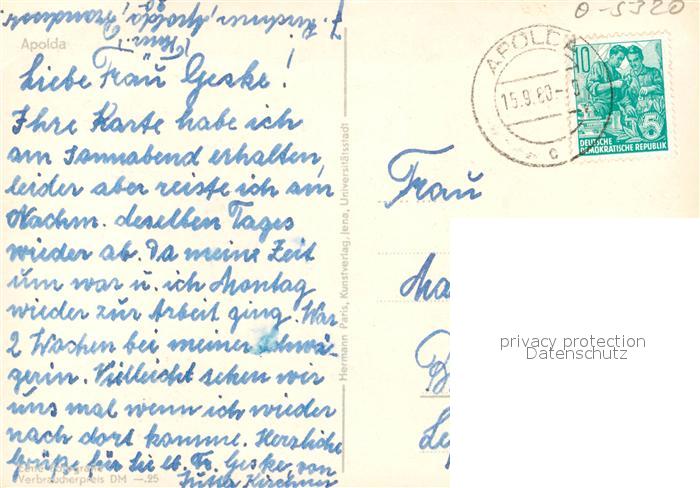 0-5320
Apolda
Liebe Frau Geske!
Ihre Karte habe ich
am Sonnabend erhalten,
leider aber reiste ich am
Nachm. deselben Tages
wieder ab. Da meine Zeit
um war u. ich Montag
wieder zur Arbeit ging. War
2 Wochen bei meiner Schwä-
gerin. Vielleicht sehen wir
uns mal wenn ich wieder
nach dort komme. Herzliche
Grüße für Sie lb. Fr. Geske, von
Jutta Kirchner
Echte Fotografie
Verbraucherpreis DM —.25
Hermann Paris, Kunstverlag, Jena, Universitätsstadt
APOLDA
15.9.60
c
10
DEUTSCHE
DEMOKRATISCHE REPUBLIK
5
Frau
privacy protection
Datenschutz